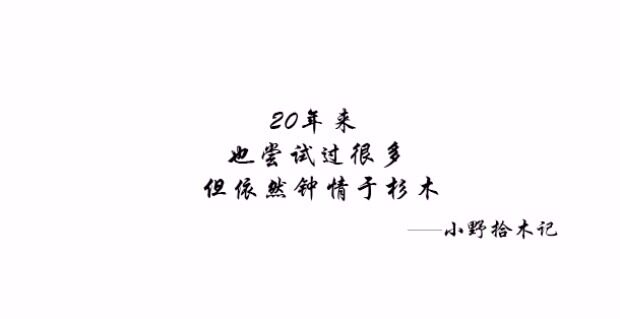 20年来
也尝试过很多
但依然钟情于杉木
——小野拾木记